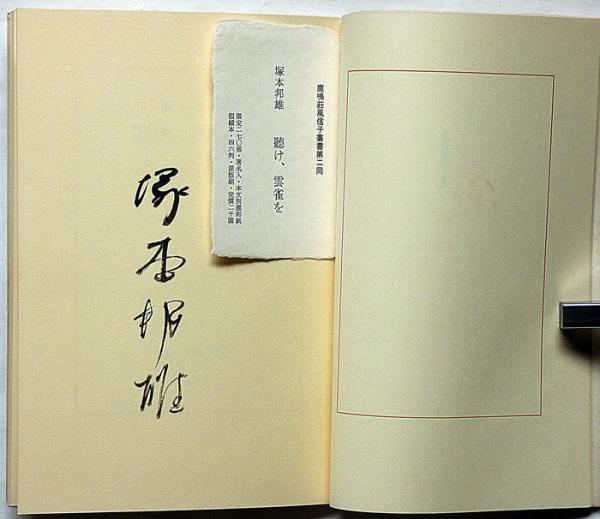 鷹鳴莊風信子叢書第二囘
塚本邦雄　聽け、雲雀を
限定二七〇部・署名入・本文別漉和紙
假綴本・四六判・原版刷・定價二千圓
塚本邦雄